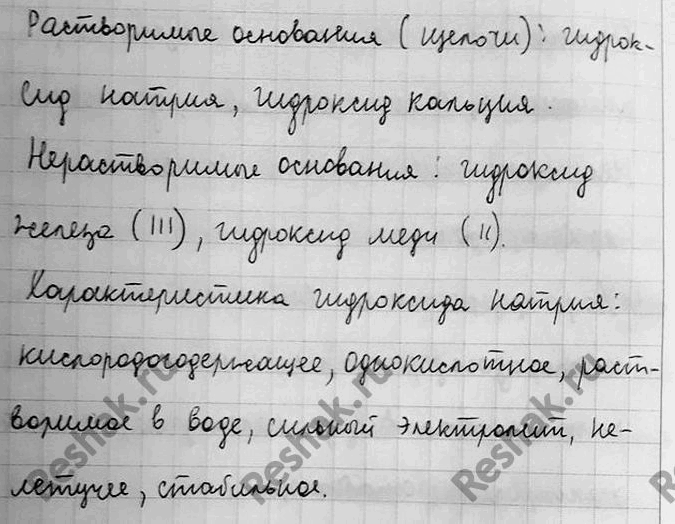 Растворимые основания (щелочи): гидрок-
сид натрия, гидроксид кальция.
Нерастворимые основания: гидроксид
железа (III), гидроксид меди (II).
Характеристика гидроксида натрия:
кислородосодержащее, однокислотное, раст-
воримое в воде, сильный электролит, не-
летучее, стабильное.
Reshak.ru
Reshak.ru
Reshak.ru